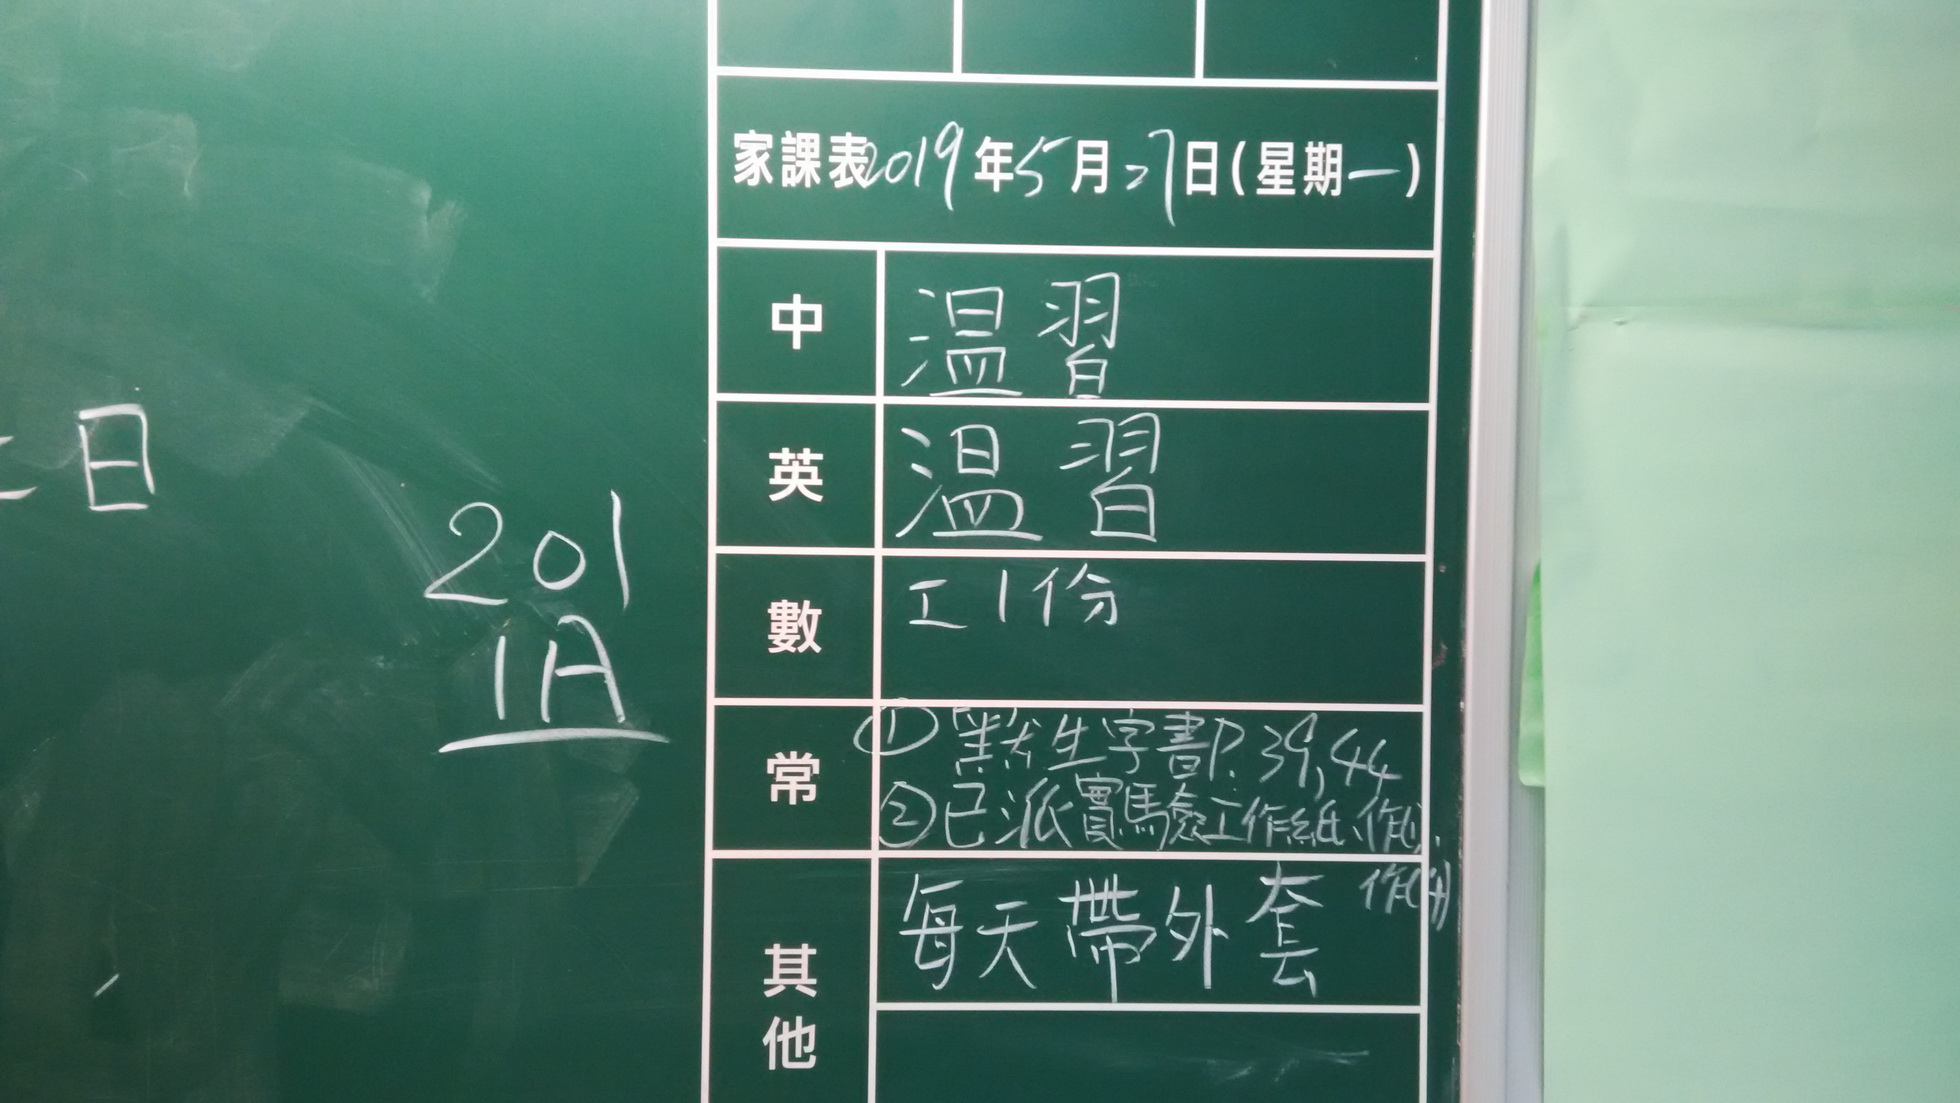 日
201
1A
家課表2019年5月27日(星期一)
中 温習
英 温習
數 工1份
常 ①默生字書P.39,44
②已派實驗工作紙、作
其他 每天帶外套